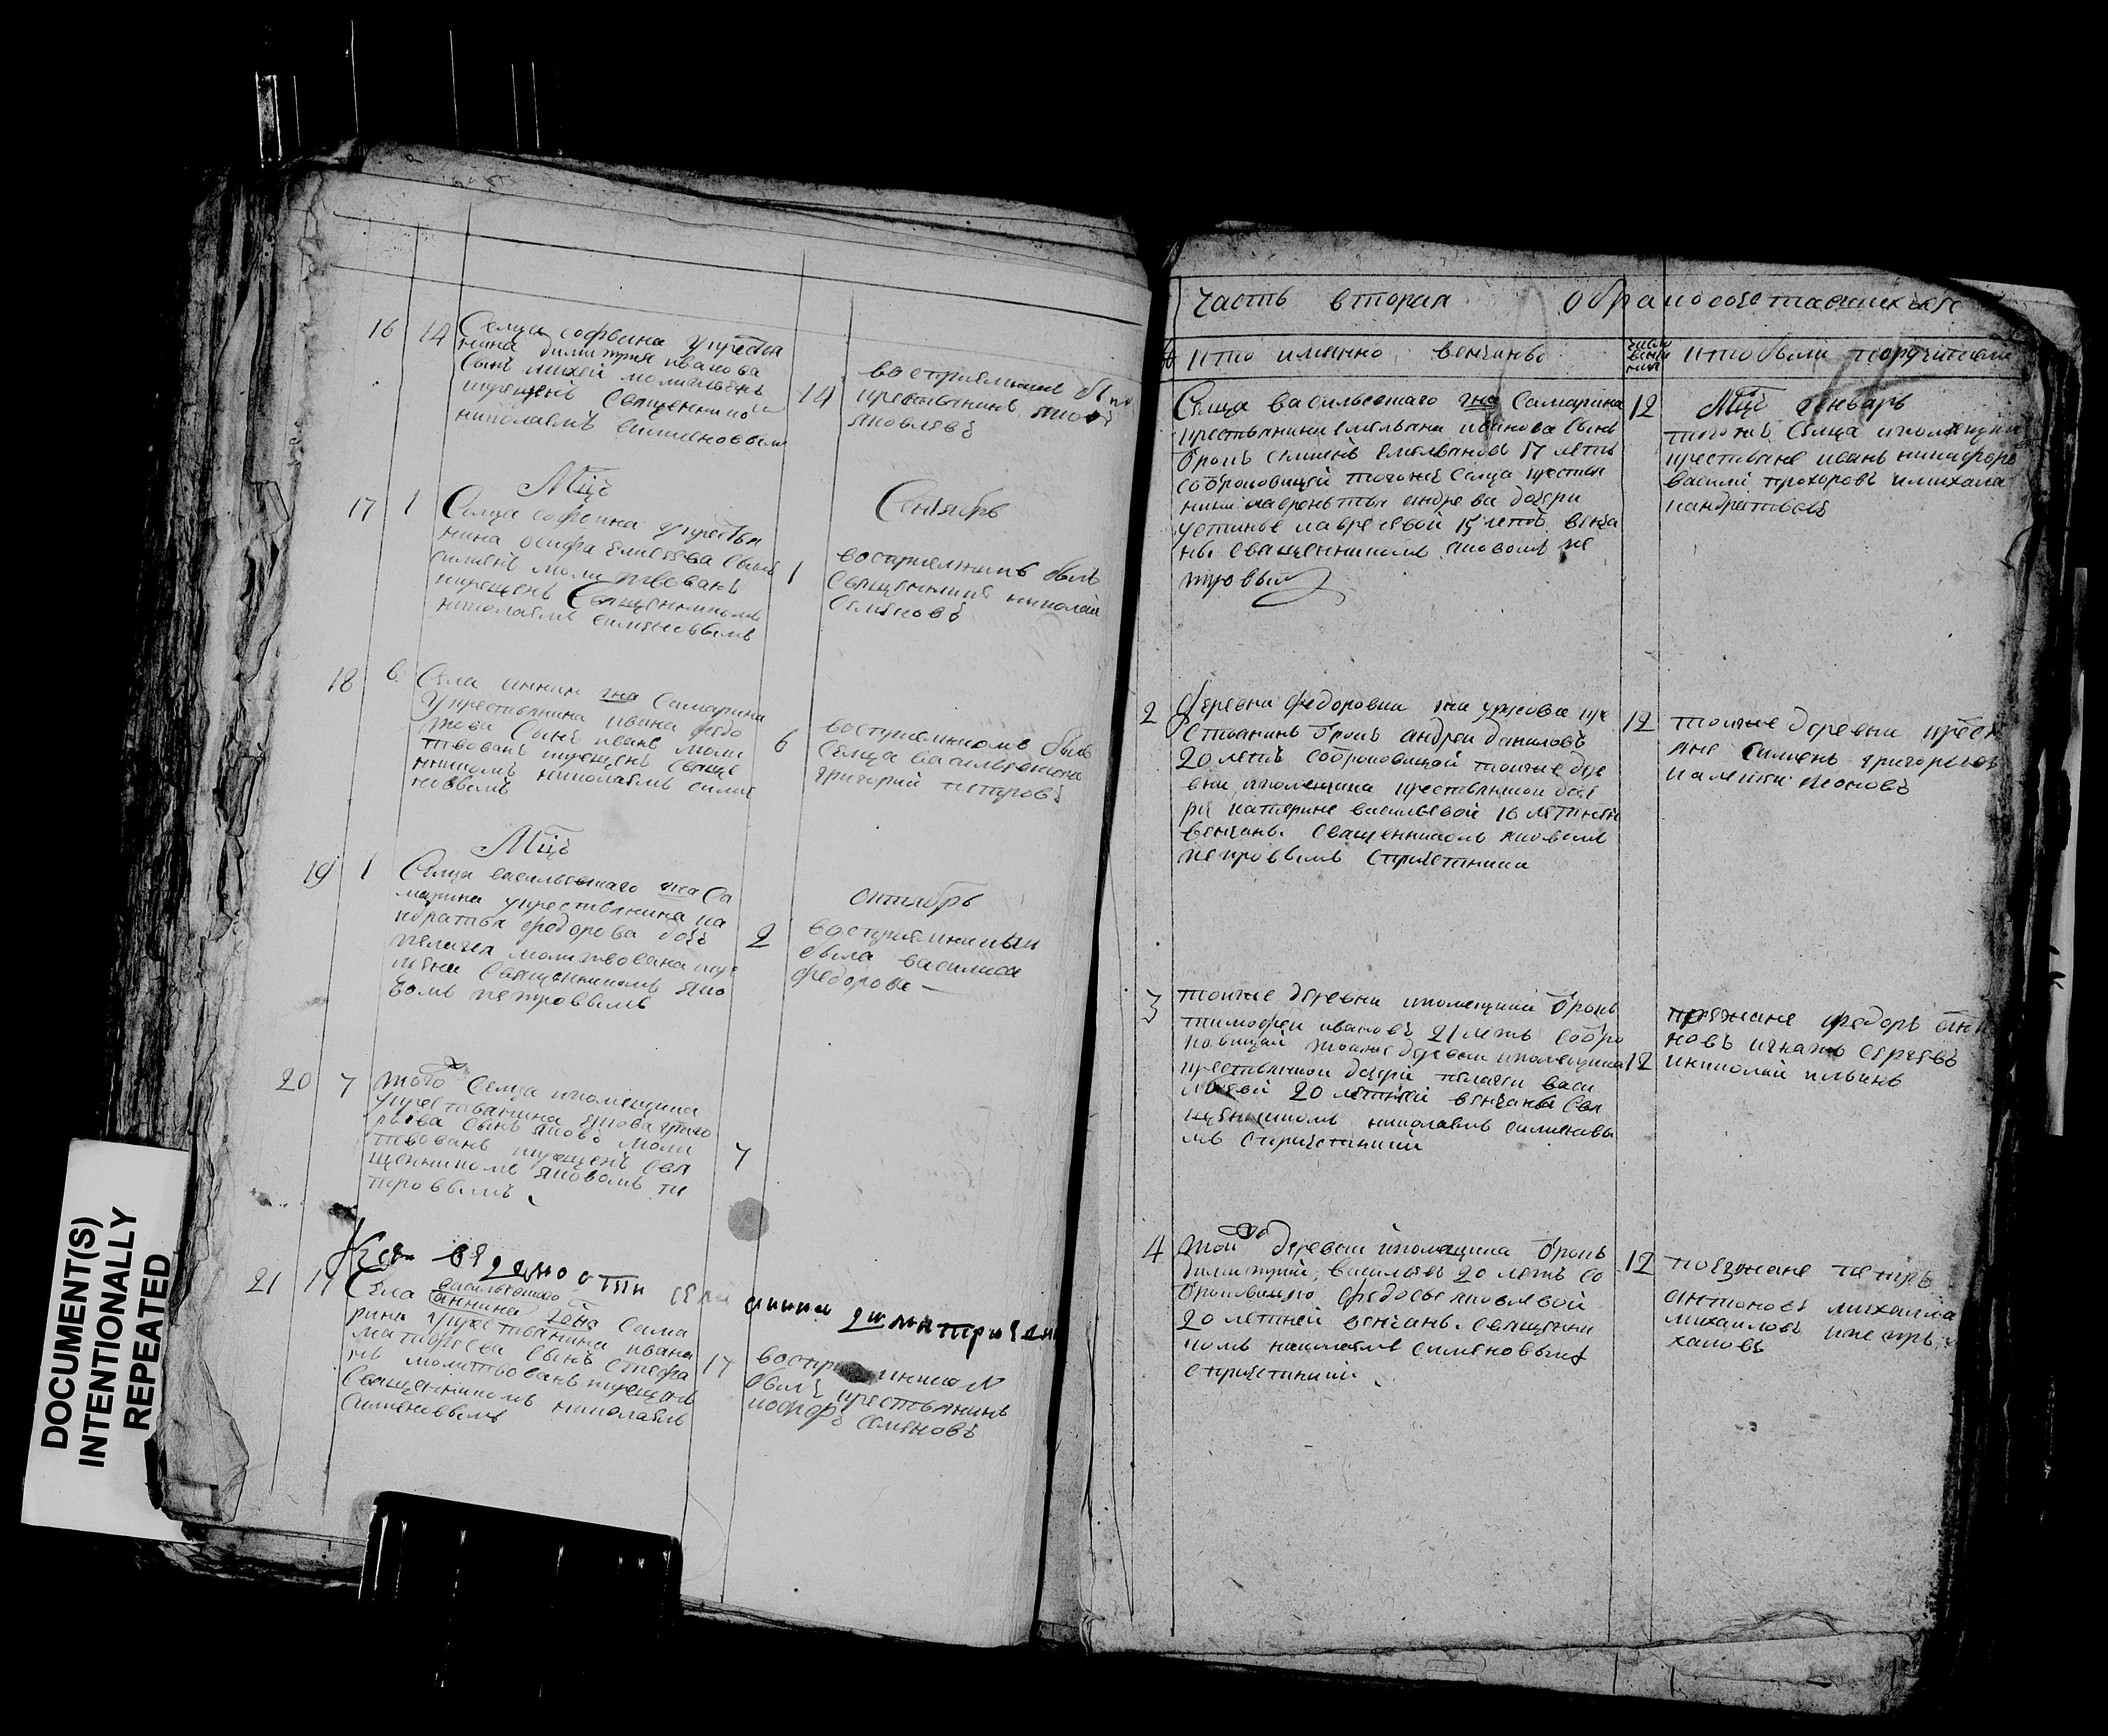 16 14 Селца софьина у крестья
нина димитрия иванова
сынъ михей молитвенъ
крещенъ священнико
николаемъ симеоновымъ
14 восприемник бы
крестьянинъ яковъ
яковлевъ
Мцъ Сентябрь
17 1 Селца софьина у крестья
нина осипа елисеева сынъ
симеонъ молитвованъ
крещенъ Священникомъ
николаемъ симеоновымъ
1 восприемникъ былъ
священникъ николай
семеновъ
18 6 Села аннина гна Самарина
у крестьянина ивана федо
това сынъ иванъ моли
твованъ крещенъ свяще
нникомъ николаемъ симео
новымъ
6 восприемникомъ былъ
селца васильевскаго
григорий петровъ
Мцъ октябрь
19 1 Селца васильевскаго гна Са
марина у крестьянина ко
ндратья федорова дочь
пелагея молитвована кре
щена священникомъ яко
вомъ петровымъ
2 восприемницыю
была василиса
федорова
20 7 того селца и помещика
у крестьянина якова григо
рьева сынъ яковъ моли
твованъ крещенъ свя
щенникомъ яковомъ пе
тровымъ
7
Къ ведомости села аннина димитриевъ
21 17 васильевскаго
Села аннина гдна Сама
рина у крестьянина ивана
матфеева сынъ стефа
нъ молитвованъ крещенъ
Священникомъ николаемъ
Симеоновымъ
17 былъ крестьянинъ
семеновъ
часть вторая о бракосочетавшихся
кто имянно венчаны число венчания кто были поручители
Селца васильевскаго гна Самарина
крестьянина емельяна иванова сынъ
брокъ симеонъ емельяновъ 17 летъ
соброковицей тогоже селца крестья
нина лаврентья андреева дочери
устинье лаврентьевой 15 летъ венча
ны священникомъ яковомъ пе
тровым
12 Мцъ Генварь
тогожъ селца и помещика
крестьяне иванъ никифоро
василей прохоровъ и михаила
кандратьевъ
2 Деревни федоровки кре
стьянинъ брокъ андрей даниловъ
20 летъ соброковицей тоюже дере
вни и помещика крестьянкой доче
ри катерине васильевой 16 летней
венчаны священникомъ яковомъ
петровымъ с причетники
12 тоюже деревни крестья
яне симеонъ григорьев
леоновъ
3 тоюже деревни и помещика брокъ
тимофей ивановъ 21 летъ собро
ковицей тоюже деревни и помещика
крестьянкой дочери пелагеи васи
льевой 20 летней венчаны свя
щенникомъ николаемъ симеоновы
мъ с причетники
12 поезжане федоръ
новъ игнатъ сергеевъ
и николай ильинъ
4 той деревни и помещика брокъ
димитрий васильевъ 20 летъ со
броковицею федосье яковлевой
20 летней венчаны священни
комъ николаемъ симеоновымъ
с причетники
12 поезжане петръ
антоновъ михаила
михаиловъ и петръ
DOCUMENT(S)
INTENTIONALLY
REPEATED